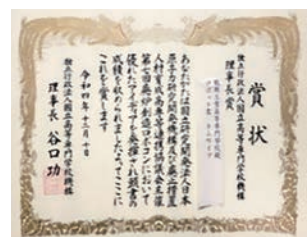 賞状
独立行政法人国立高等専門学校機構
理事長賞
あなたがたは国立研究開発法人日本
原子力研究開発機構及び廃止措置
人材育成高専等連携協議会主催
第七回廃炉創造ロボコンにおいて
優れたアイディアを発揮され頭書の
成績を収められましたよってここに
これを賞します
令和四年十二月十日
独立行政法人国立高等専門学校機構
理事長 谷口功